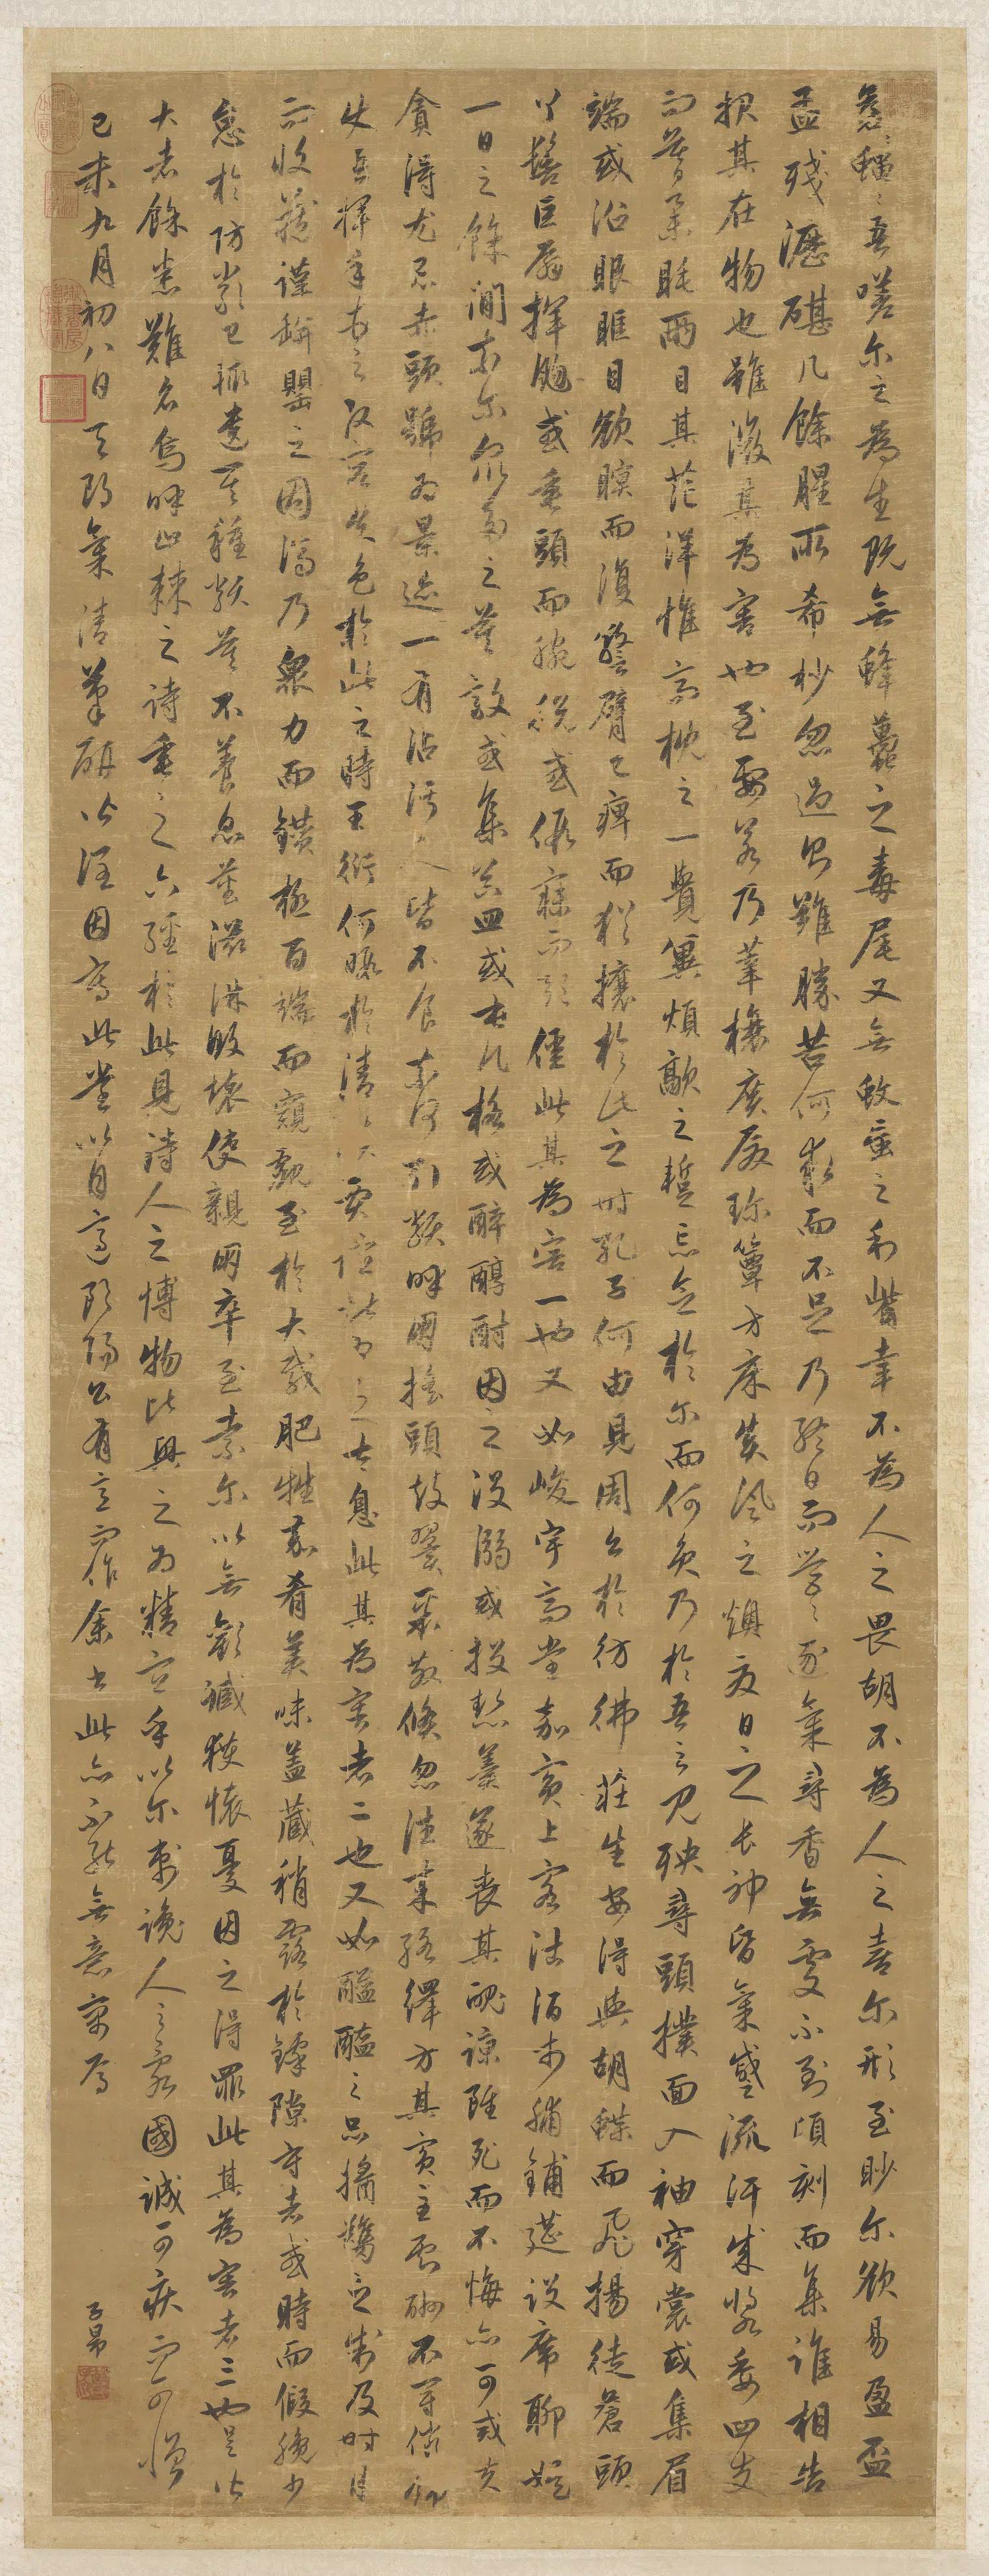 蒼〻蠅〻吾嗟尔之為生既無蜂蠆之毒尾又無蚊虻之利觜幸不為人之畏胡不為人之喜尔形至眇尔欲易盈盃
盂殘瀝碪几餘腥所希杪忽過則難勝苦何求而不足乃終日而營〻逐氣尋香無處不到頃刻而集誰相告
報其在物也雖微其為害也至要若乃華榱廣廈珍簟方床炎風之燠夏日之長神昏氣蹙流汗成漿委四支
而莫舉眊兩目其茫洋惟高枕之一覺冀煩歊之暫忘念於尔而何負乃於吾之見殃尋頭撲面入袖穿裳或集眉
端或沿眼眶目欲瞑而復警臂已痺而猶攘於此之時孔子何由見周公於彷彿莊生安得與胡蝶而飛揚徒蒼頭
丫髻巨扇揮颺或垂頭而腕脫或假寐而顛僵此其為害一也又如峻宇高堂嘉賓上客沽酒市脯鋪筵設席聊娛
一日之餘閒奈尔眾多之莫敵或集器皿或屯几格或醉醇酎因之沒溺或投熱羹遂喪其魄諒雖死而不悔亦可戒夫
貪得尤忌赤頭號為景迹一有沾污人皆不食奈何引類呼朋搖頭鼓翼聚散倏忽往來絡繹方其賓主獻酬
使吾揮手頓足改容失色於此之時王衍何暇於清談賈誼堪為之太息此其為害者二也又如醯醢之品醬臡之制及時月
而收藏謹缾罌之固濟乃眾力而鑽極百端而窺覦至於大胾肥牲嘉肴美味蓋藏稍露於罅隙守者或時而假寐少
怠於防嚴已輒遺其種類莫不養息蕃滋淋漓敗壞使親朋卒至索尔以無歡臧獲懷憂因之得罪此其為害者三也是皆
大者餘悉難名嗚呼止棘之詩垂之六經於此見詩人之博物比興之為精宜乎以尔刺讒人之亂國誠可疾而可憎
己未九月初八日天朗氣清筆研以溼因書此以自適歐陽公有言作余書此亦不能無意寓焉
子昂